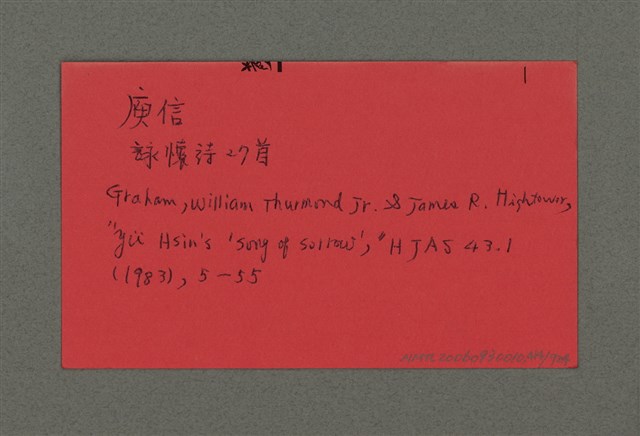 庾信
詠懷詩27首
Graham, William Thurmond Jr. & James R. Hightower,
"Yü Hsin's 'Song of Sorrow'," HJAS 43.1
(1983), 5-55